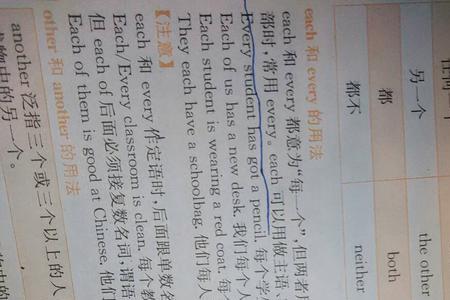 另一个 the other
都 both
都不 neither
each 和 every 的用法
each 和 every 都意为“每一个”,但两者
都时,常用 every。each 可以用做主语、
Every student has got a pencil. 每个学
Each of us has a new desk. 我们每个人
Each student is wearing a red coat. 每
They each have a schoolbag. 他们每人
【注意】
each 和 every 作定语时,后面跟单数名
Each/Every classroom is clean. 每个教
但 each of 后面必须接复数名词,谓语
Each of them is good at Chinese. 他们
other 和 another 的用法
another 泛指三个或三个以上的人
物中的另一个。